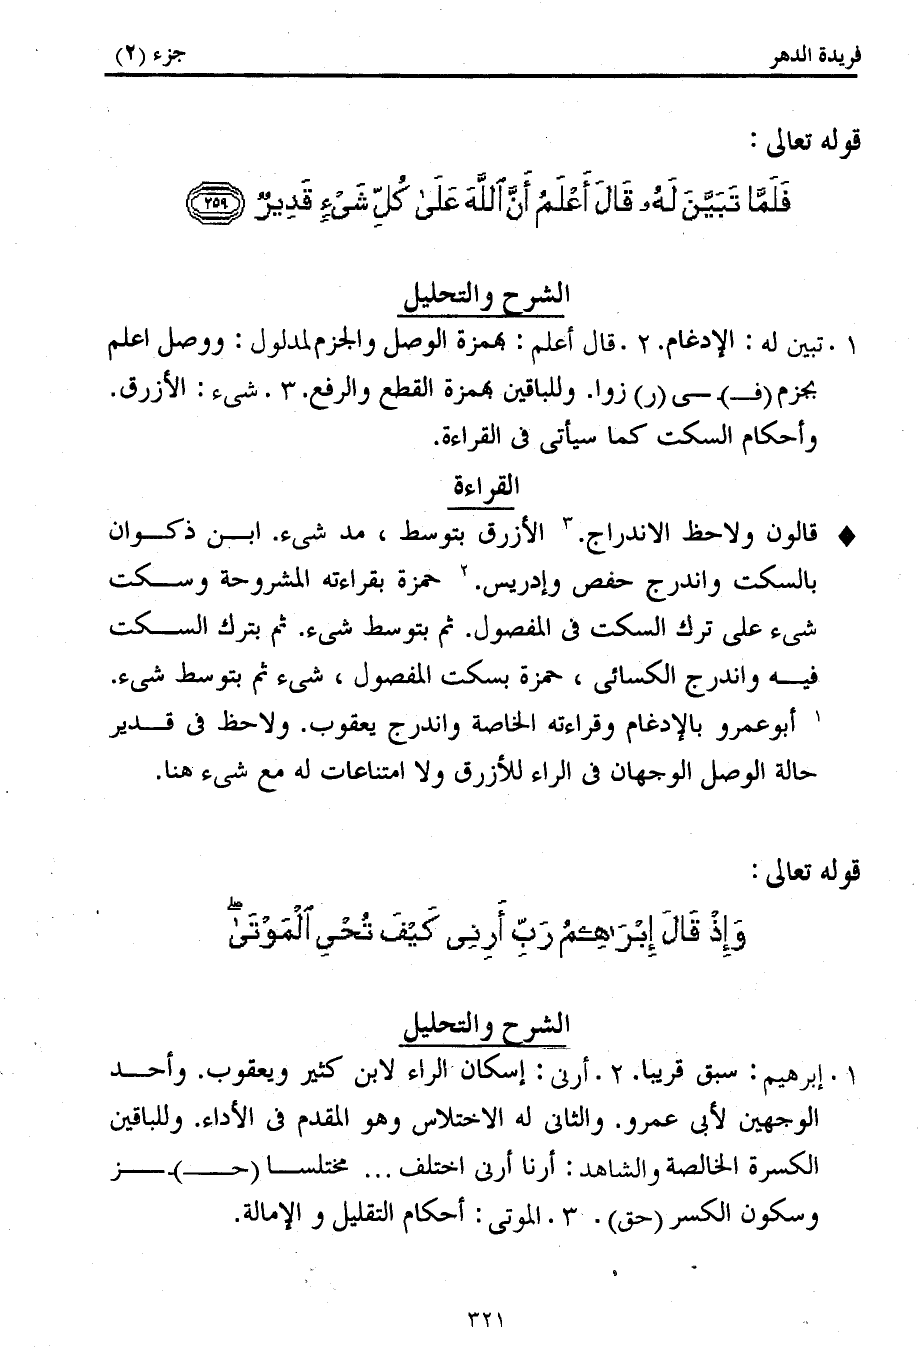 فريدة الدهر جزء (٢)
قوله تعالى :
فَلَمَّا تَبَيَّنَ لَهُۥ قَالَ أَعْلَمُ أَنَّ ٱللَّهَ عَلَىٰ كُلِّ شَىْءٍ قَدِيرٌ ٢٥٩
الشرح والتحليل
١ . تبين له : الإدغام. ٢ . قال أعلم : بهمزة الوصل والجزم لمدلول : ووصل اعلم
بجزم (فـ)ـى (ر) زوا. وللباقين بهمزة القطع والرفع. ٣ . شىء : الأزرق.
وأحكام السكت كما سيأتى فى القراءة.
القراءة
♦ قالون ولاحظ الاندراج. ٣ الأزرق بتوسط ، مد شىء. ابن ذكوان
بالسكت واندرج حفص وإدريس. ٢ حمزة بقراءته المشروحة وسكت
شىء على ترك السكت فى المفصول. ثم بتوسط شىء. ثم بترك السكت
فيه واندرج الكسائى ، حمزة بسكت المفصول ، شىء ثم بتوسط شىء.
١ أبوعمرو بالإدغام وقراءته الخاصة واندرج يعقوب. ولاحظ فى قدير
حالة الوصل الوجهان فى الراء للأزرق ولا امتناعات له مع شىء هنا.
قوله تعالى :
وَإِذْ قَالَ إِبْرَٰهِـۧمُ رَبِّ أَرِنِى كَيْفَ تُحْىِ ٱلْمَوْتَىٰ ۖ
الشرح والتحليل
١ . إبرهيم : سبق قريبا. ٢ . أرنى : إسكان الراء لابن كثير ويعقوب. وأحد
الوجهين لأبى عمرو. والثانى له الاختلاس وهو المقدم فى الأداء. وللباقين
الكسرة الخالصة والشاهد : أرنا أرنى اختلف ... مختلسا (حـ)ـز
وسكون الكسر (حق) . ٣ . الموتى : أحكام التقليل و الإمالة.
٣٢١